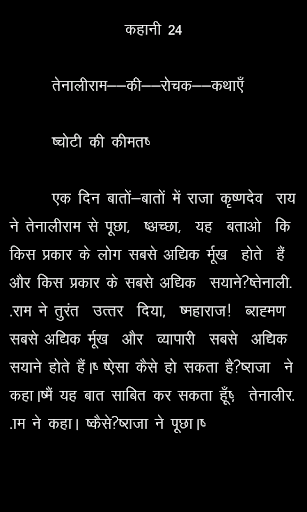 कहानी 24
तेनालीराम––की––रोचक––कथाएँ
ष्चोटी की कीमतष्
एक दिन बातों–बातों में राजा कृष्णदेव राय
ने तेनालीराम से पूछा, ष्अच्छा, यह बताओ कि
किस प्रकार के लोग सबसे अधिक र्मूख होते हैं
और किस प्रकार के सबसे अधिक सयाने?ष्तेनाली.
.राम ने तुरंत उत्तर दिया, ष्महाराज! ब्राह्मण
सबसे अधिक र्मूख और व्यापारी सबसे अधिक
सयाने होते हैं।ष् ष्ऐसा कैसे हो सकता है?ष्राजा ने
कहा।ष्मैं यह बात साबित कर सकता हूँष्, तेनालीर.
.ाम ने कहा। ष्कैसे?ष्राजा ने पूछा।ष्